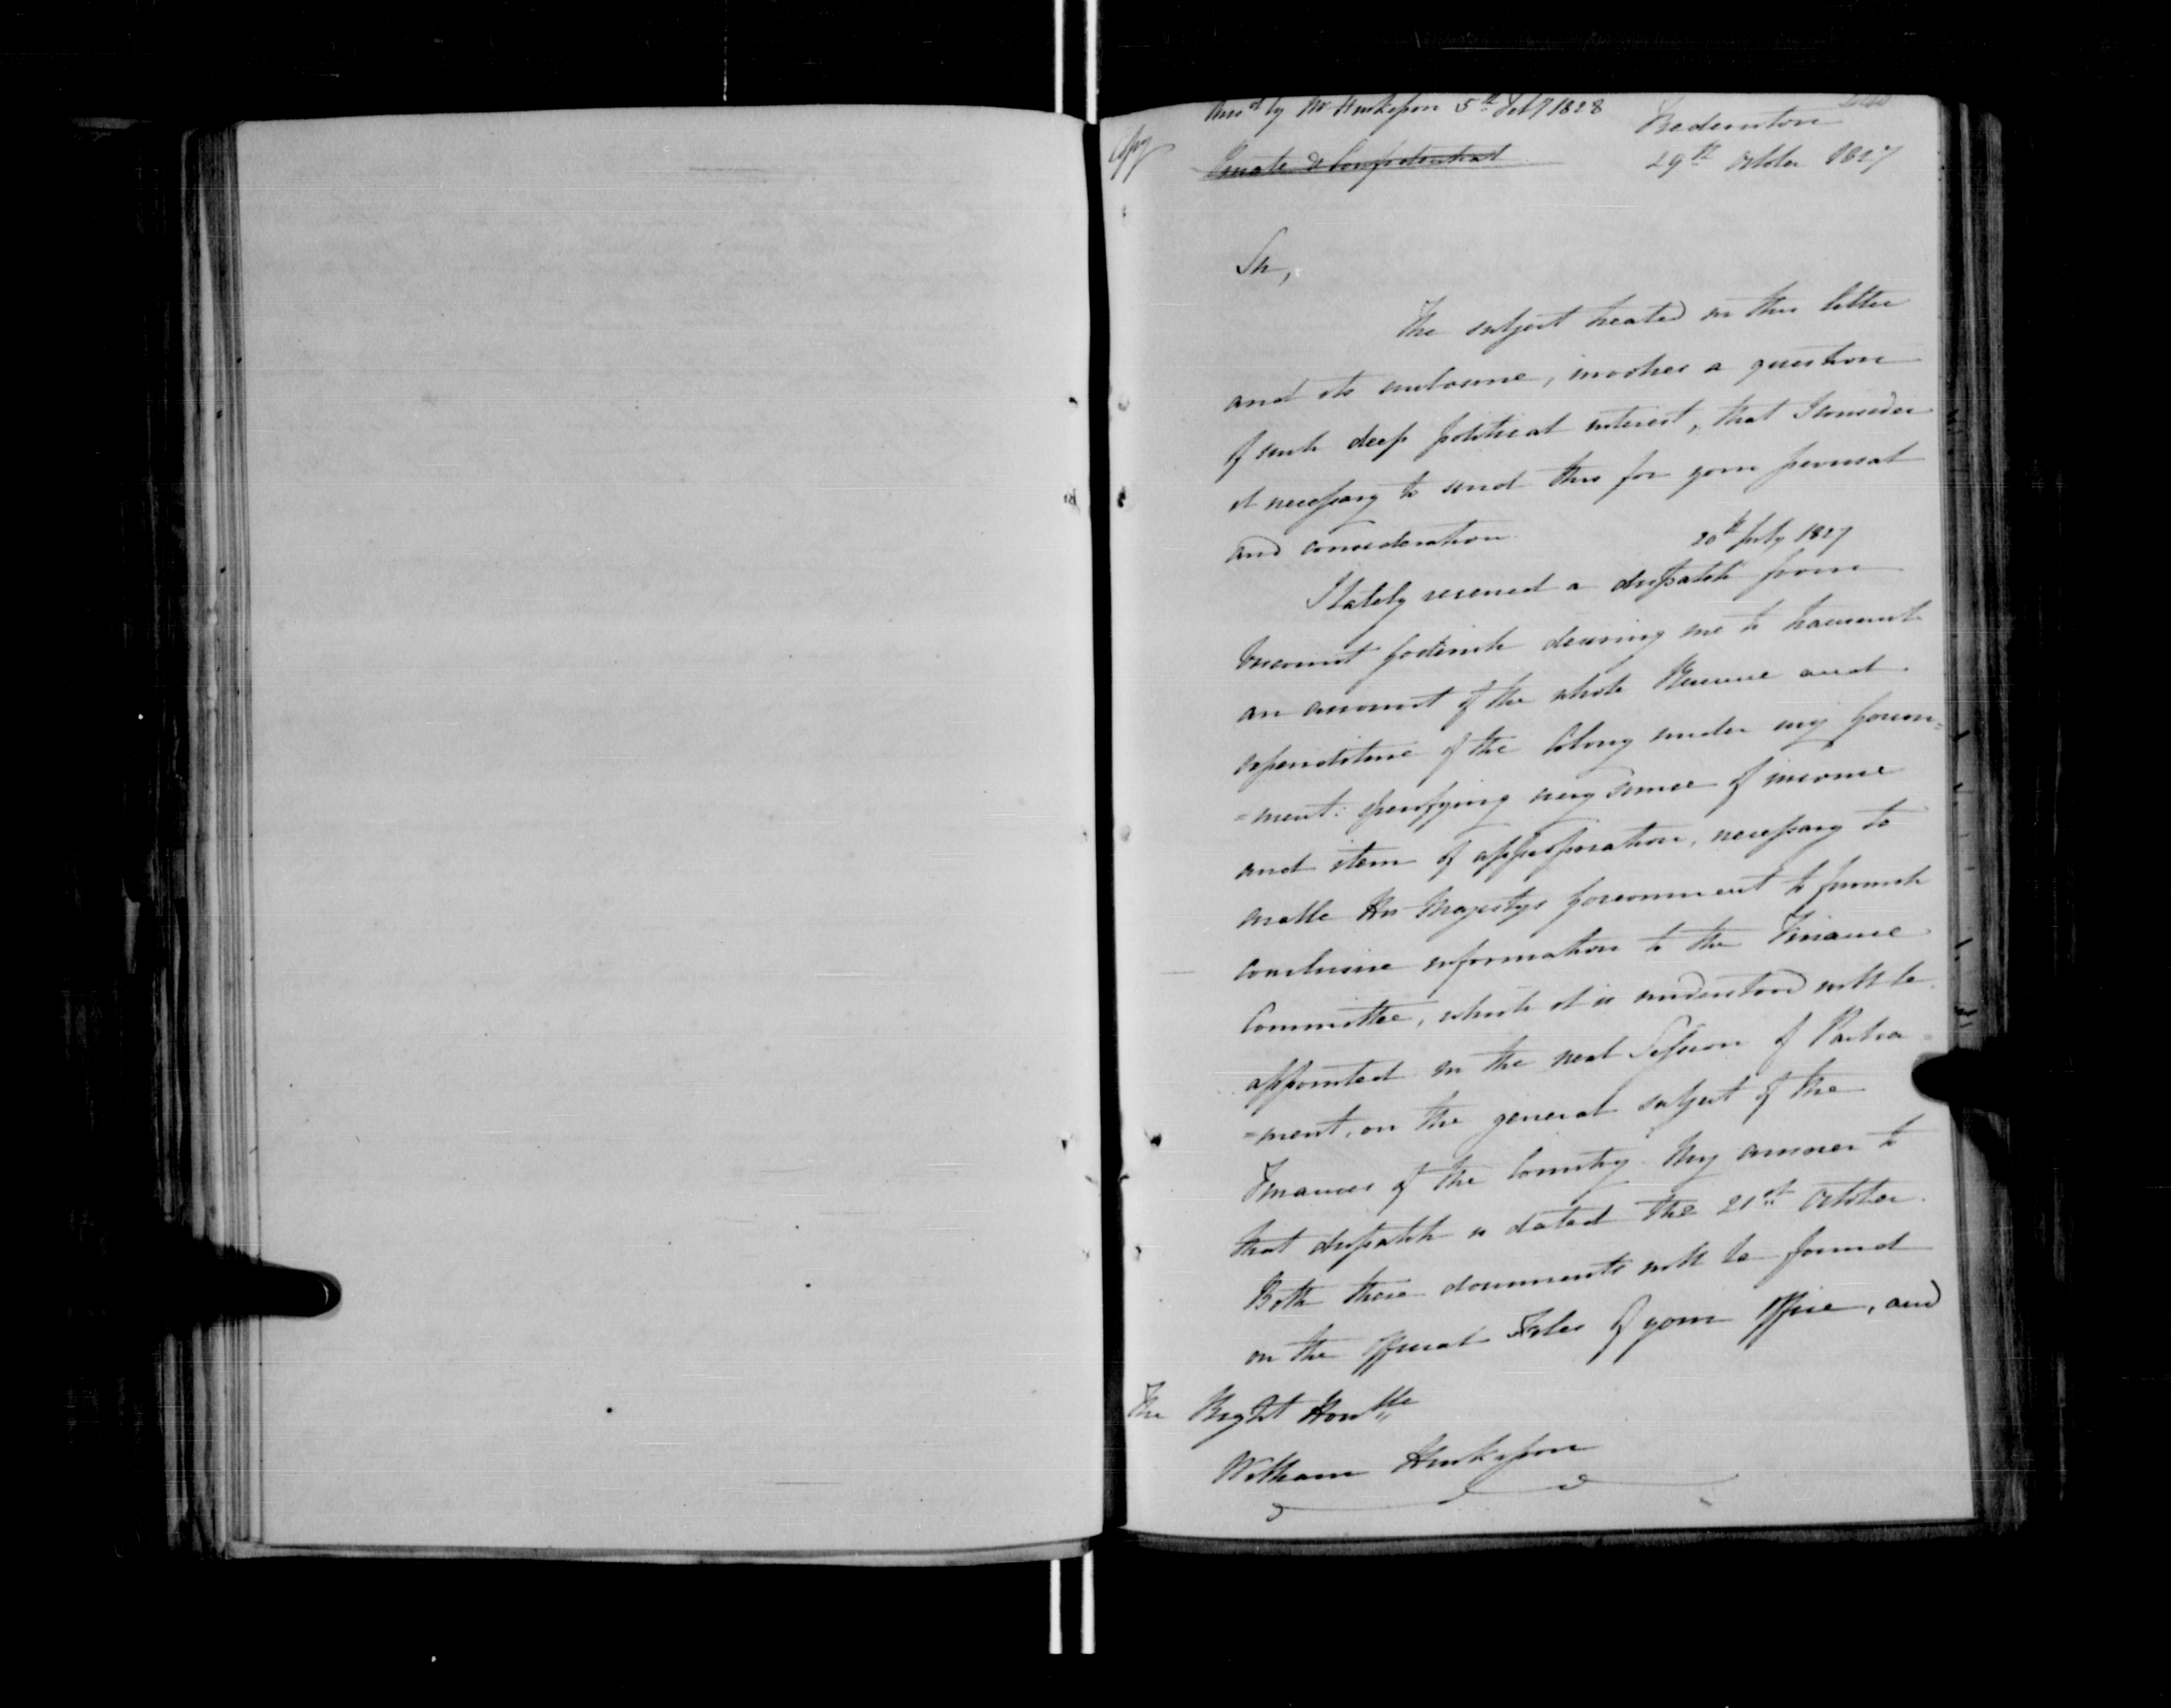 Ans'd by Mr Huskisson 5th Feby 1828
Copy
Private & Confidential
Fredericton
29th October 1827
Sir,
The subject treated in this letter
and its enclosure, involves a question
of such deep political interest, that I consider
it necessary to send this for your perusal
and consideration.
20th July 1827
I lately received a dispatch from
Viscount Goderich desiring me to transmit
an account of the whole Revenue and
expenditure of the Colony under my Govern=
=ment: specifying every source of income
and item of appropriation, necessary to
enable His Majestys Government to furnish
conclusive information to the Finance
Committee, which it is understood will be
appointed in the next Session of Parlia=
=ment, on the general subject of the
Finances of the Country. My answer to
that dispatch is dated the 21st October.
Both these documents will be found
on the official Files of your Office, and
The Right Honble
William Huskisson